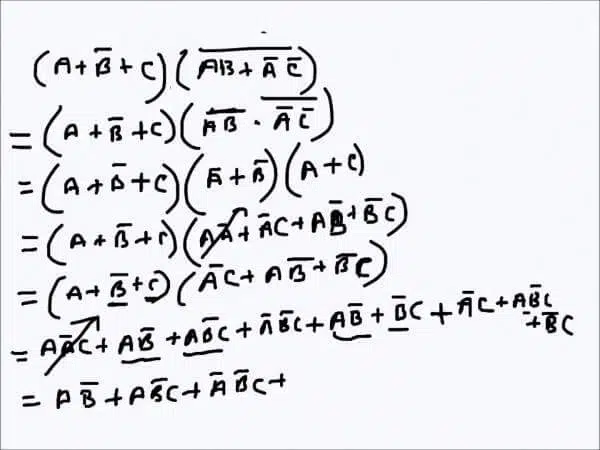 (A + B̅ + C) (A̅B̅ ̅+̅ ̅A̅̅ ̅C̅̅)
= (A + B̅ + C) (A̅B̅ · A̅̅ ̅C̅̅)
= (A + B̅ + C) (A̅ + B̅) (A + C)
= (A + B̅ + C) (AA̅ + A̅C + AB̅ + B̅C)
= (A + B̅ + C) (A̅C + AB̅ + B̅C)
= AA̅C + AB̅ + AB̅C + A̅B̅C + AB̅ + B̅C + A̅C + AB̅C + B̅C
= AB̅ + AB̅C + A̅B̅C +